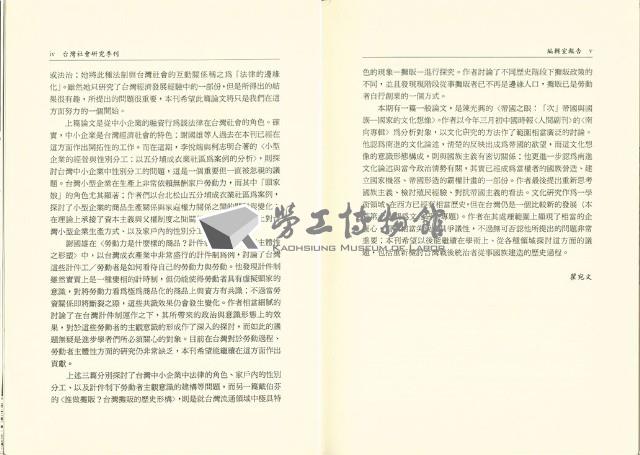 iv 台灣社會研究季刊
或法治；她將此種法制與台灣社會的互動關係稱之為「法律的邊緣
化」。雖然她只研究了台灣經濟發展經驗中的一部份，但是所得出的結
果很有趣，所提出的問題很重要，本刊希望此篇論文將只是我們在這
方面努力的一個開始。
上篇論文是從中小企業的融資行為談法律在台灣社會的角色。確
實，中小企業是台灣經濟社會的特色；謝國雄等人過去在本刊已經在
這方面作出開拓性的工作。而在這期，李悅端與柯志明合著的〈小型
企業的經營與性別分工：以五分埔成衣業社區為案例的分析〉，則探
討台灣中小企業中性別分工的問題，這是一個重要但一直被忽視的議
題。台灣小型企業在生產上非常依賴無酬家戶勞動力，而其中「頭家
娘」的角色尤其顯著；作者們以台北松山五分埔成衣業社區為案例，
探討了小型企業的商品生產關係與家庭權力關係之間的
在理論上承接了資本主義與父權制度之
灣小型企業生產方式、以及家戶內的性別分工
謝國雄在〈勞動力是什麼樣的商品？計件
之形塑〉中，以台灣成衣產業中非常盛行的計件制為例，討論了台灣
這些計件工／勞動者是如何看待自己的勞動力與勞動。他發現計件制
雖然實質上是一種變相的計時制，但仍能使得勞動者具有虛擬頭家的
意識，對將勞動力看為極為商品化的商品上與資方有共識；不過當勞
資關係即將斷裂之際，這些共識效果仍會發生變化。作者相當細膩的
討論了在台灣計件制運作之下，其所帶來的政治與意識形態上的效
果，對於這些勞動者的主觀意識的形成作了深入的探討，而如此的議
題無疑是進步學者們所必須關心的對象。目前在台灣對於勞動過程、
勞動者主體性方面的研究仍非常缺乏，本刊希望能繼續在這方面作出
貢獻。
上述三篇分別探討了台灣中小企業中法律的角色、家戶內的性別
分工、以及計件制下勞動者主觀意識的建構等問題，而另一篇戴伯芬
的〈誰做攤販？台灣攤販的歷史形構〉，則是就台灣流通領域中極具特
編輯室報告 v
色的現象─攤販─進行探究。作者討論了不同歷史階段下攤販政策的
不同，並且發現現階段從事攤販者已不再是邊緣人口，攤販已是勞動
者自行創業的一個方式。
本期有一篇一般論文，是陳光興的〈帝國之眼：「次」帝國與國
族─國家的文化想像〉。作者以今年三月初中國時報〈人間副刊〉的〈南
向專輯〉為分析對象，以文化研究的方法作了範圍相當廣泛的討論。
他認為南進的文化論述，清楚的反映出成為帝國的欲望，而這文化想
像的意識形態構成，則與國族主義有密切關係；他更進一步認為南進
文化論述與當今政治情勢有關，其實已經成為當權者的國族營造、建
立國家機器、帝國形造的霸權計畫的一部份。作者最後提出重新思考
國族主義、檢討殖民經驗、對抗帝國主義的看法。文化研究作為一學
術領域，在西方已經有相當歷史，但在台灣仍是一個比較新的發展（本
作者在其處理範圍上顯現了相當的企
圖心，
要；本刊希望以後能繼續在學術上，從各種領域探討這方面的議
題，包括重新檢討台灣戰後統治者從事國族建造的歷史過程。
瞿宛文
勞工博物館
KAOHSIUNG MUSEUM OF LABOR